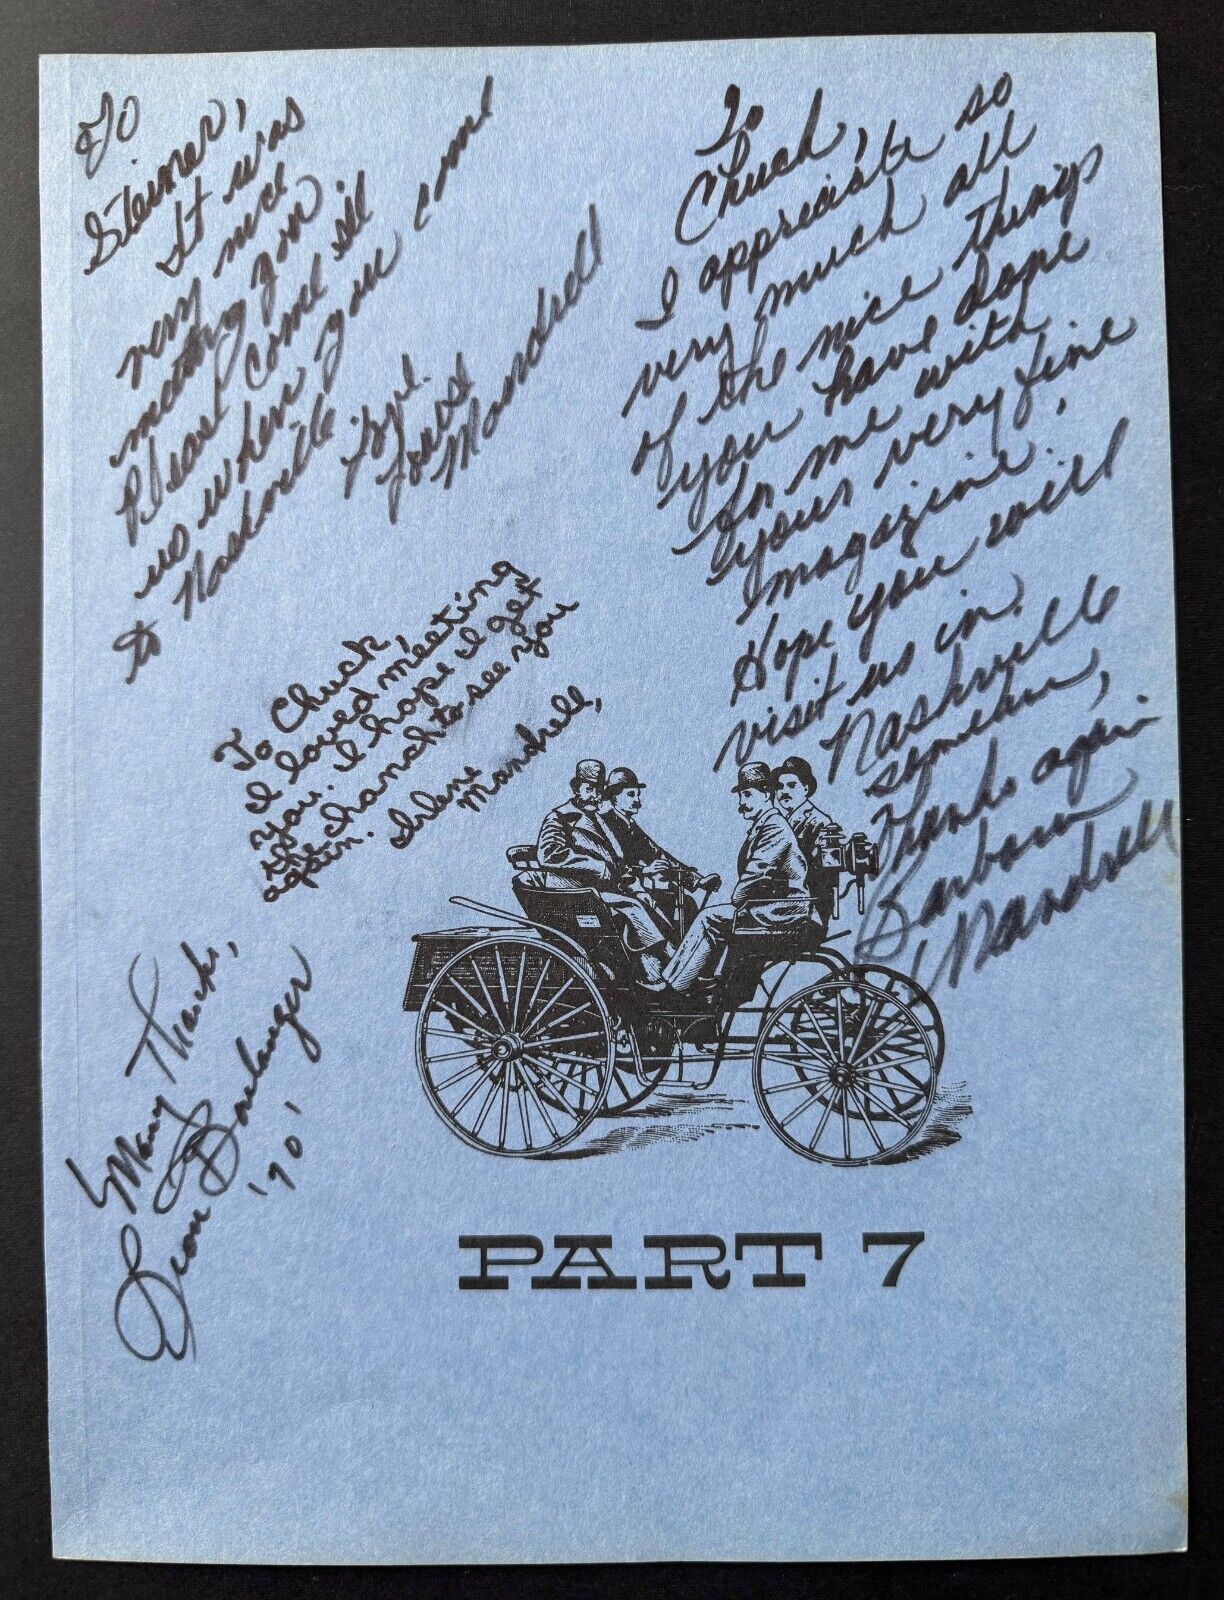 To
Steiner,
It was
very nice
meeting you
Please come
us when you come
to Nashville
Louise
Mandrell
To
Chuck,
I appreciate so
very much all
of the nice things
you have done
for me with
your very fine
magazine.
Hope you will
visit us in
Nashville
sometime,
Thanks again
Barbara
Mandrell
To Chuck,
I loved meeting
you. I hope I get
the chanch to see you
again. Irlene
Mandrell,
Many Thanks,
'70'
PART 7